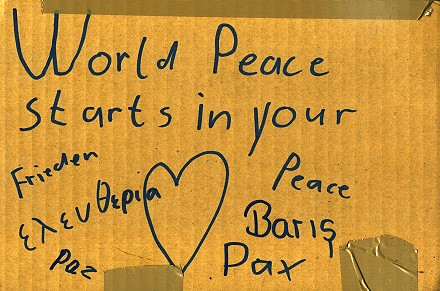 World Peace
starts in your
Frieden
ελευθερια
Paz
Peace
Barış
Pax